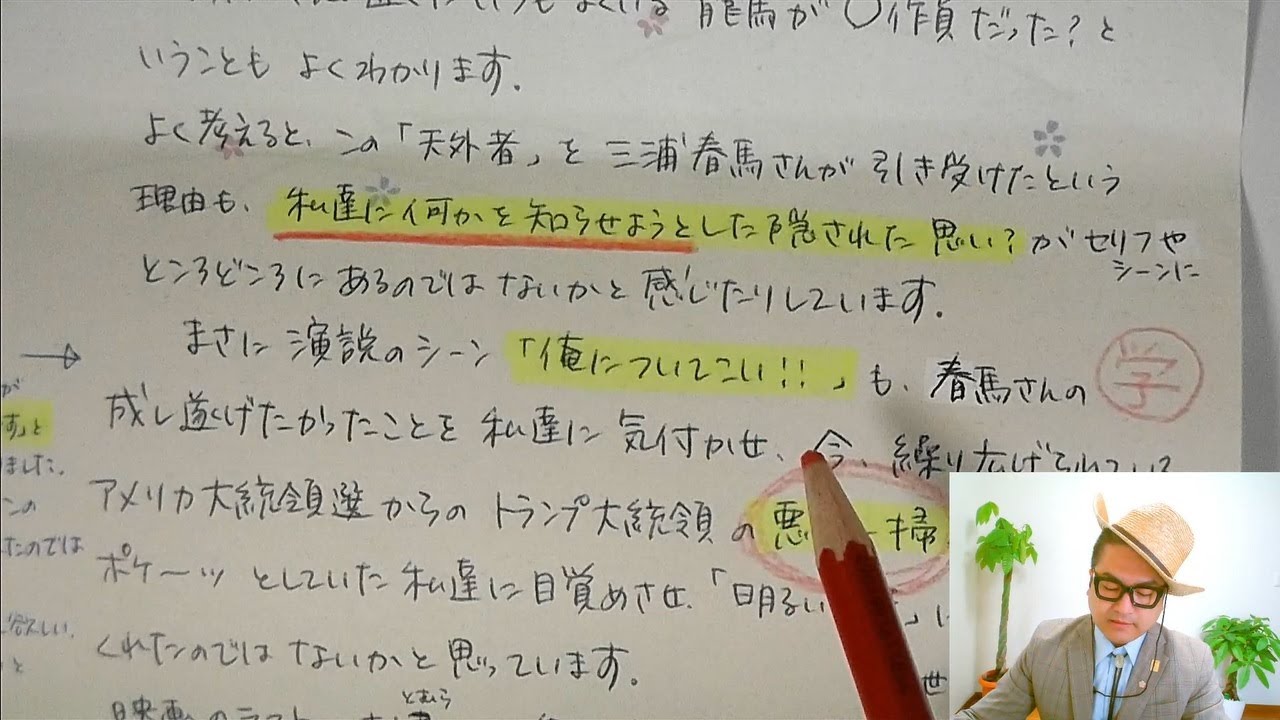 龍馬が〇作員だった?と
いうことも よくわかります.
よく考えると、この「天外者」を 三浦春馬さんが 引き受けたという
理由も、私達に何かを知らせようとした隠された思い?がセリフや
シーンに
ところどころにあるのではないかと感じたりしています.
まさに演説のシーン「俺についてこい!!」も、春馬さんの
学
成し遂げたかったことを私達に気付かせ、今、繰り広げられている
アメリカ大統領選からのトランプ大統領の悪 一掃
ポケ〜ッとしていた私達に目覚めさせ、「明るい
くれたのではないかと思っています.
とむら
映画のラスト
が
す」と
ました.
の
たのでは
欲しい.
と
世